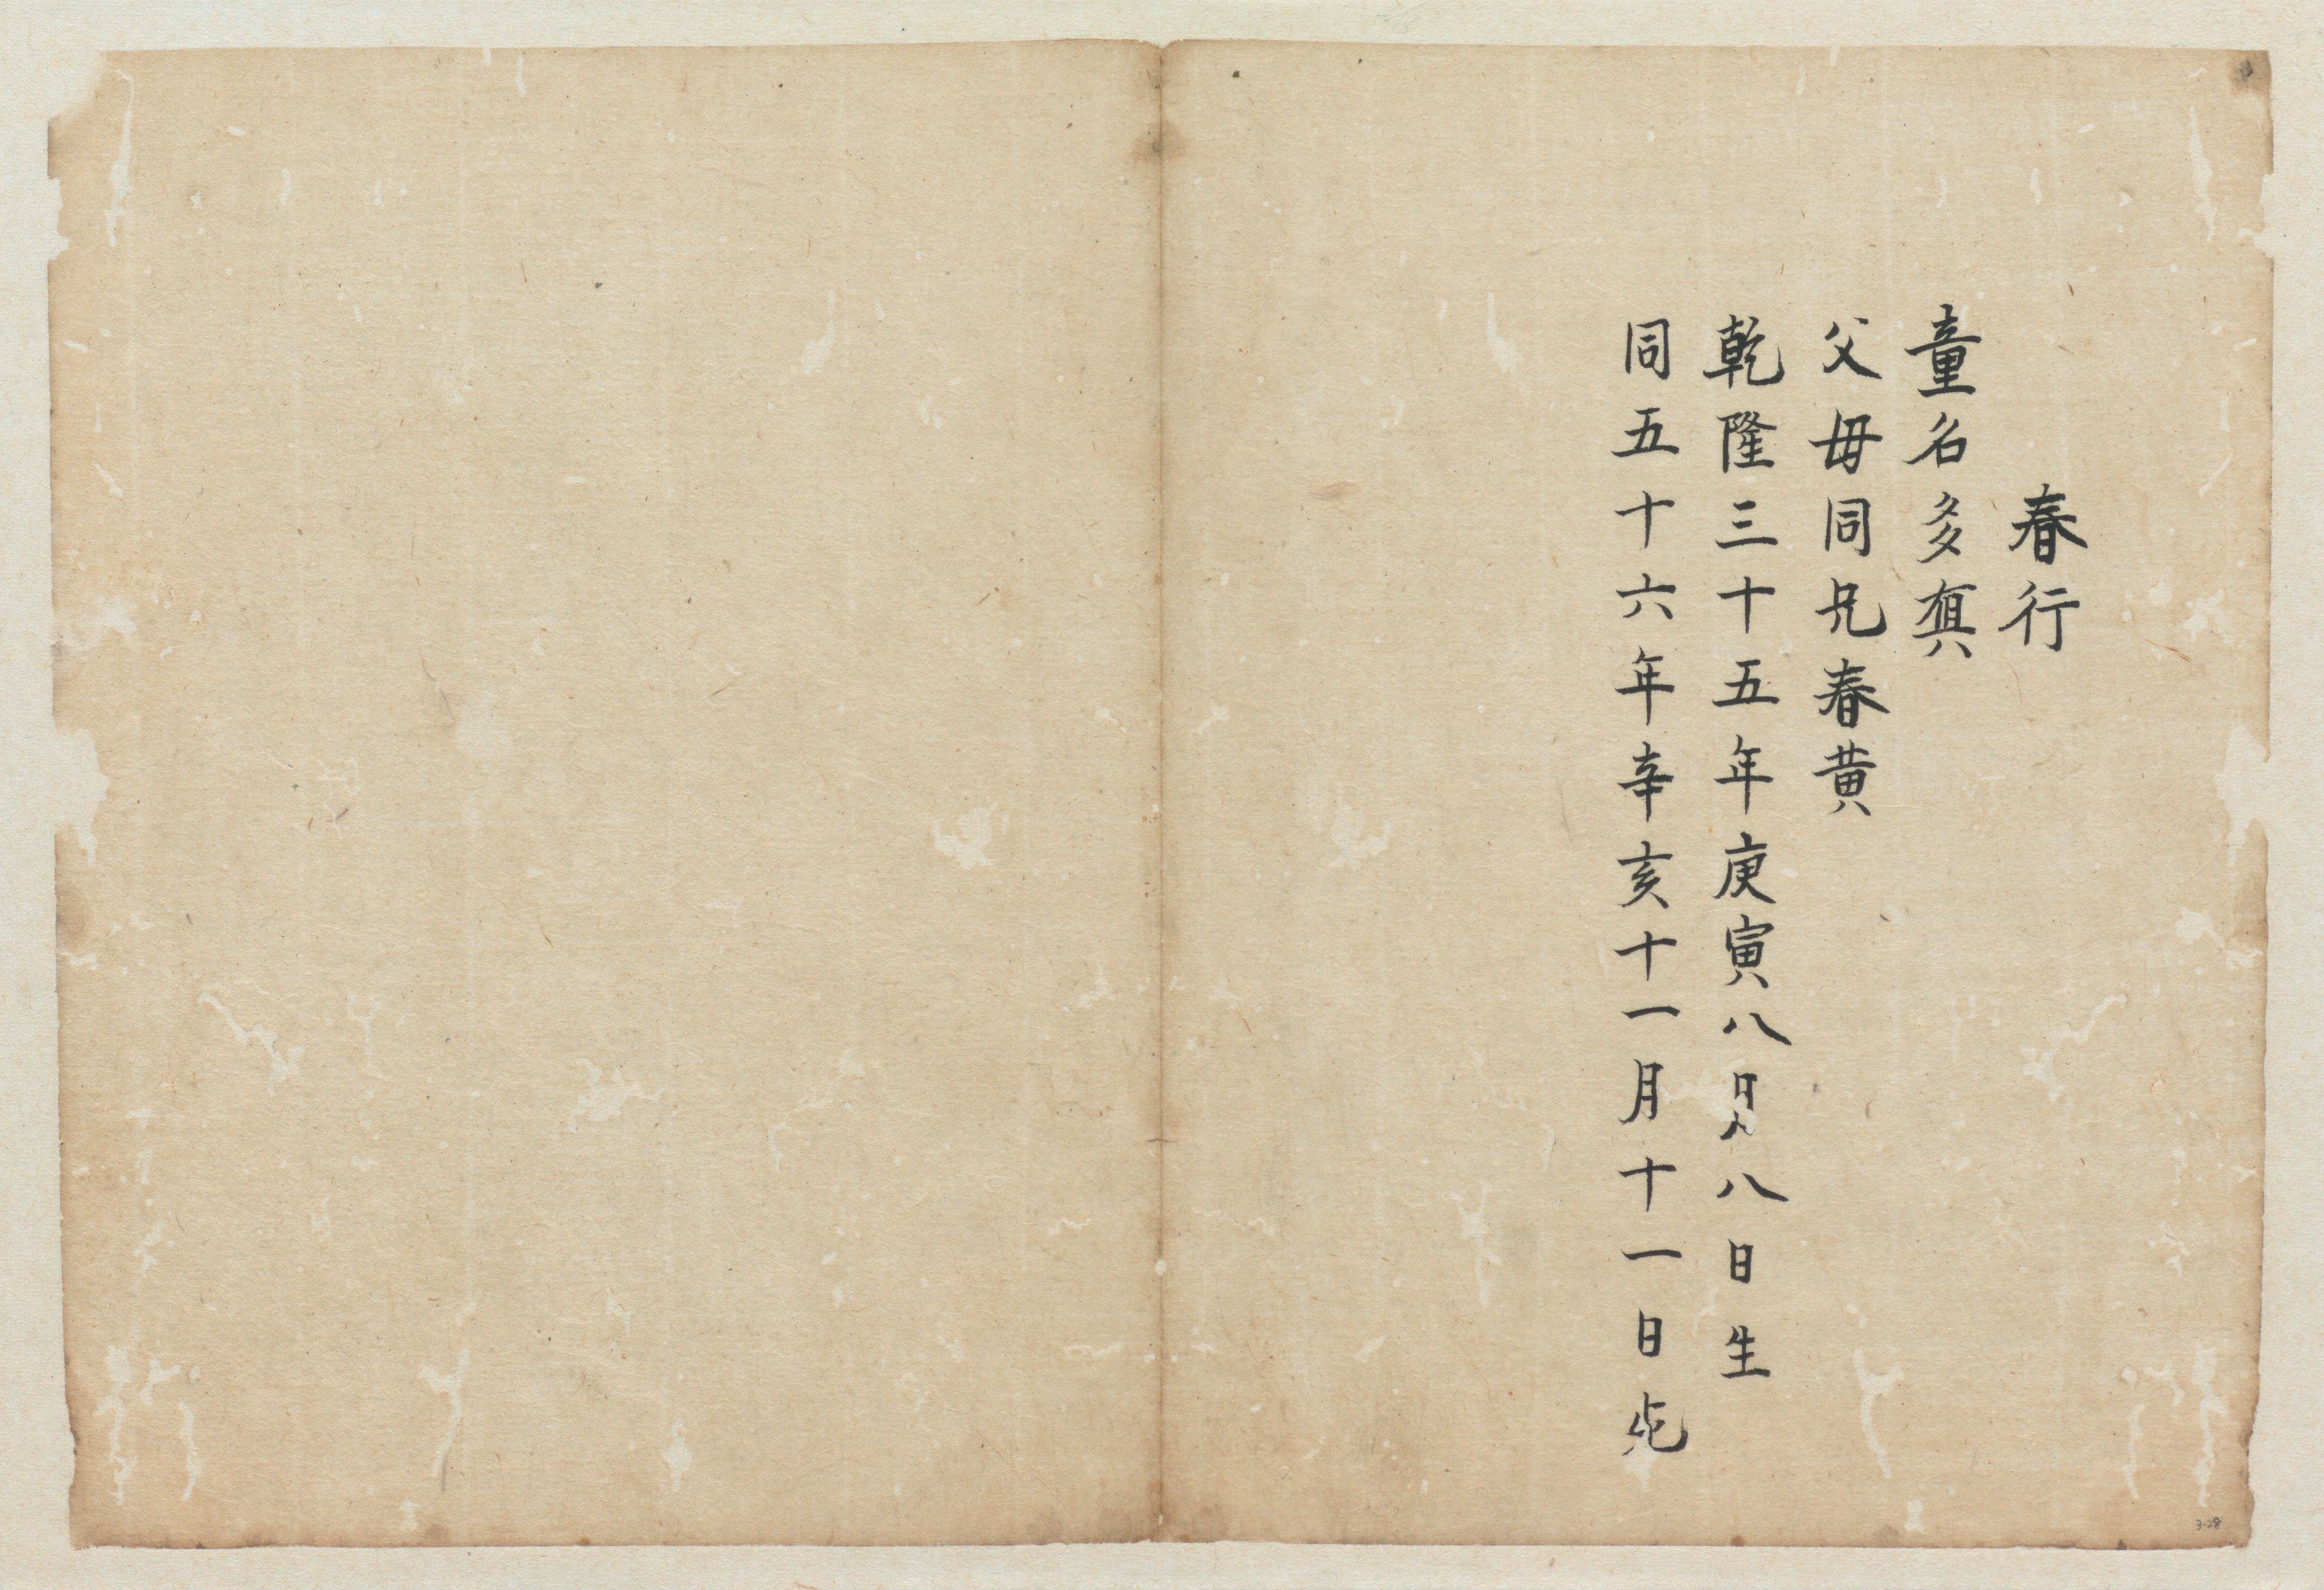 春行
童名多真
父母同兄春黄
乾隆三十五年庚寅八月八日生
同五十六年辛亥十一月十一日死
3-28